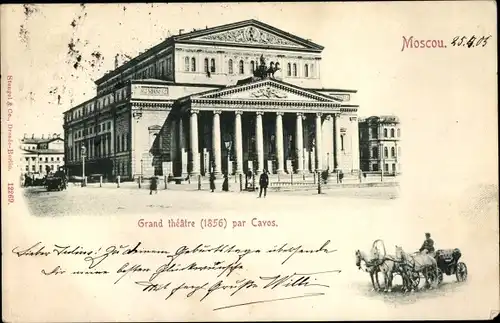 Moscou.
25.4.05
Stengel & Co., Dresde-Berlin.
12269.
Grand théâtre (1856) par Cavos.
Lieber! Zu Deinem Geburtstage übersende
Dir meine besten Glückwünsche
Mit herzl. Grüßen Willi